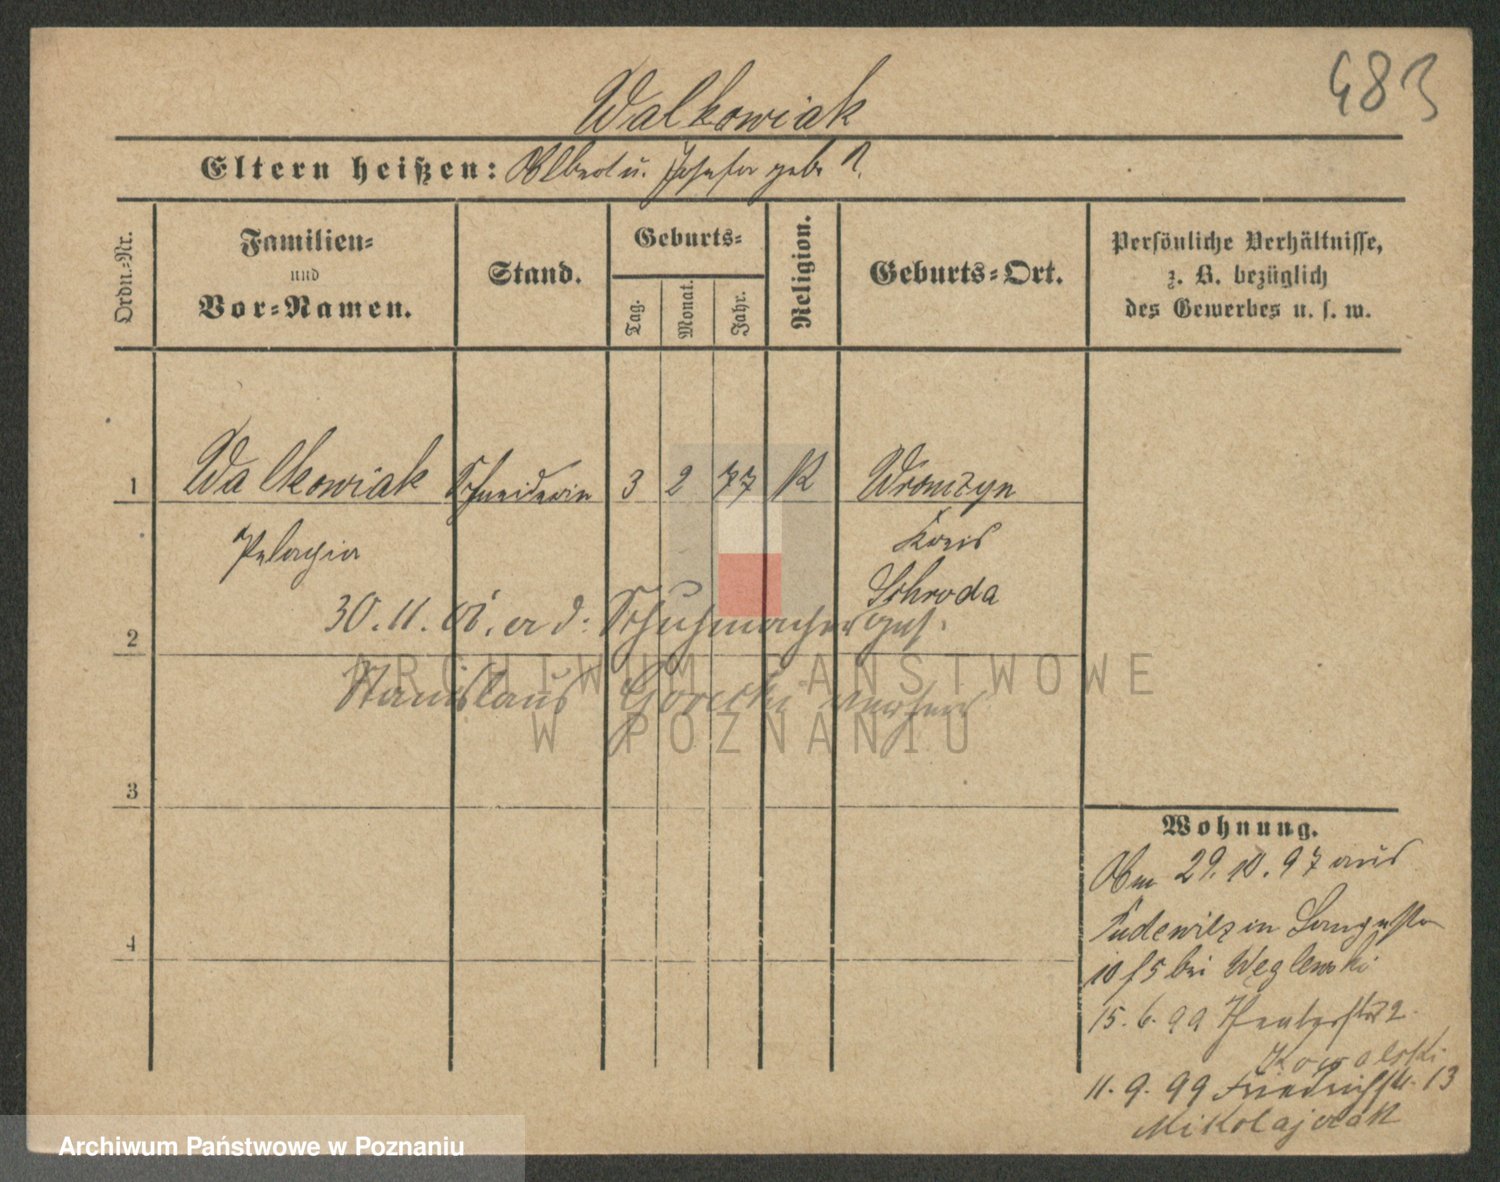 483
Walkowiak
Eltern heißen: Albert u. Josefa geb. N.
Ordn.-Nr.
Familien-
und
Vor-Namen.
Stand.
Geburts-
Tag.
Monat.
Jahr.
Religion.
Geburts-Ort.
Persönliche Verhältnisse,
z. B. bezüglich
des Gewerbes u. s. w.
1 Walkowiak Schneiderin 3 2 77 K Wronczyn
Pelagia Kreis
Schroda
30.11.01. a. d. Schuhmacherges.
2
ARCHIWUM PAŃSTWOWE
Stanislaus Gorecki verh
W POZNANIU
3
Wohnung.
Am 29.10.97 aus
4
Pudewitz in Langestr
10 / 5 bei Węglewski
15.6.99 Theaterstr 2.
Kowalski
11.9.99 Friedrichstr. 13
Mikolajczak
Archiwum Państwowe w Poznaniu